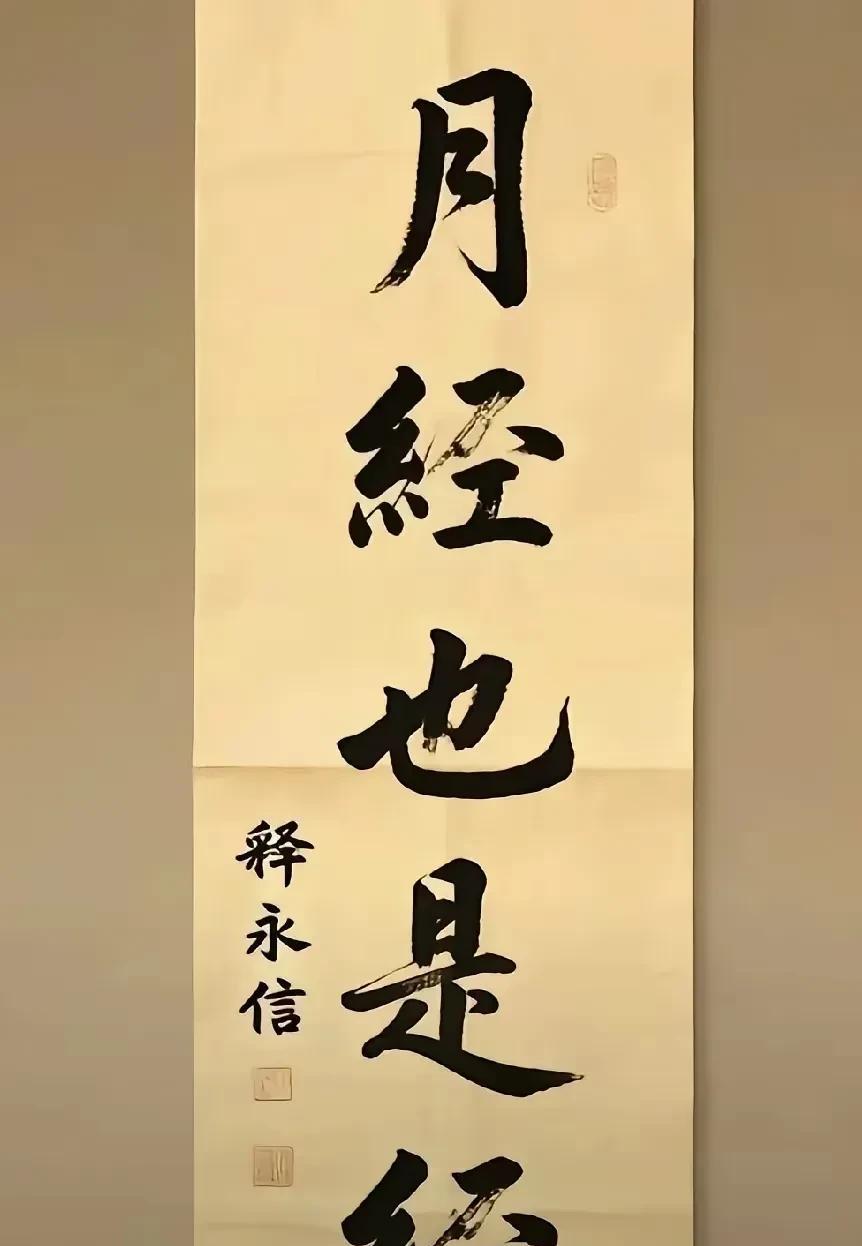 月經也是經
释永信